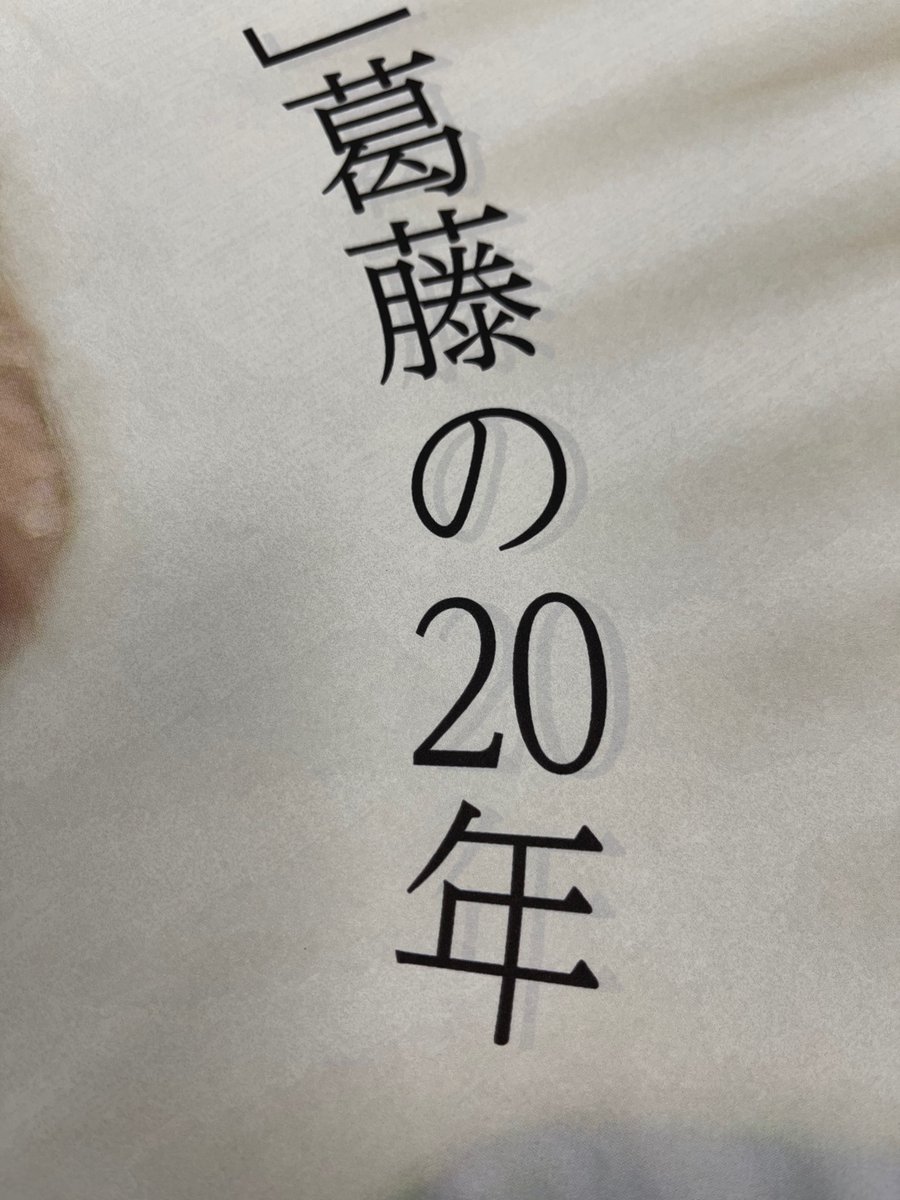 」葛藤の20年